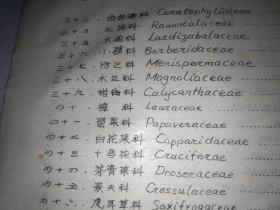 三十三、金鱼藻科 Ceratophyllaceae
三十四、毛茛科 Ranunculaceae
三十五、木通科 Lardizabalaceae
三十六、小蘗科 Berberidaceae
三十七、防己科 Menispermaceae
三十八、木兰科 Magnoliaceae
三十九、蜡梅科 Calycanthaceae
四十、樟科 Lauraceae
四十一、罂粟科 Papaveraceae
四十二、白花菜科 Capparidaceae
四十三、十字花科 Cruciferae
四十四、茅膏菜科 Droseraceae
四十五、景天科 Crassulaceae
四十六、虎耳草科 Saxifragaceae